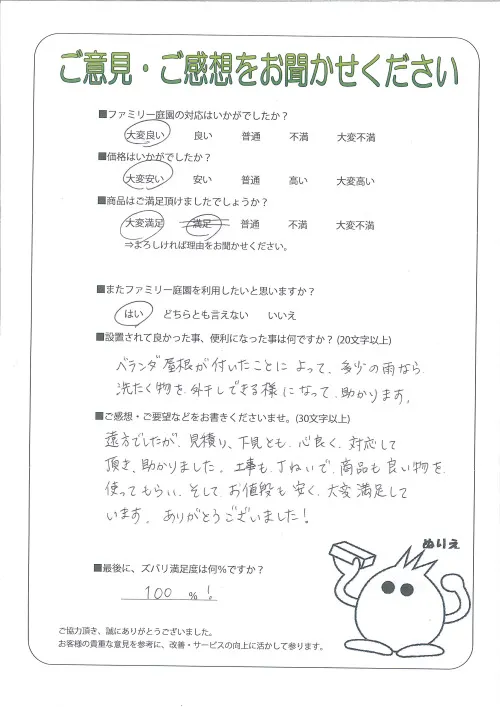 ご意見・ご感想をお聞かせください
■ファミリー庭園の対応はいかがでしたか？
大変良い 良い 普通 不満 大変不満
■価格はいかがでしたか？
大変安い 安い 普通 高い 大変高い
■商品はご満足頂けましたでしょうか？
大変満足 満足 普通 不満 大変不満
⇒よろしければ理由をお聞かせください。
■またファミリー庭園を利用したいと思いますか？
はい どちらとも言えない いいえ
■設置されて良かった事、便利になった事は何ですか？(20文字以上)
ベランダ屋根が付いたことによって、多少の雨なら
洗たく物を外干しできる様になって、助かります。
■ご感想・ご要望などをお書きくださいませ。(30文字以上)
遠方でしたが、見積り、下見とも、心良く、対応して
頂き、助かりました。工事も、丁ねいで、商品も良い物を
使ってもらい、そして、お値段も安く、大変満足して
います。ありがとうございました！
ぬりえ
■最後に、ズバリ満足度は何％ですか？
100 ％！
ご協力頂き、誠にありがとうございました。
お客様の貴重な意見を参考に、改善・サービスの向上に活かして参ります。